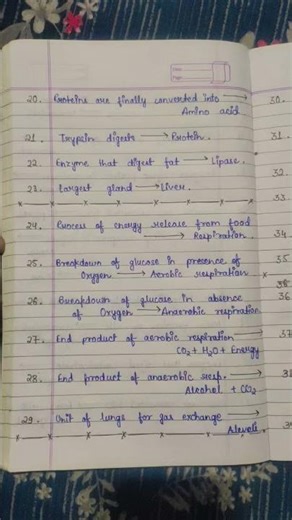 20. Proteins are finally converted into → 30.
Amino acid
21. Trypsin digests → Protein. 31.
22. Enzyme that digest fat → Lipase.
32.
23. Largest gland → Liver. 33
24. Process of energy release from food
→ Respiration. 34
25. Breakdown of glucose in presence of 35.
Oxygen → Aerobic respiration
26. Breakdown of glucose in absence 36
of Oxygen → Anaerobic respiration
27. End product of aerobic respiration → 37
CO2 + H2O + Energy
28. End product of anaerobic resp. →
Alcohol + CO2
29. Unit of lungs for gas exchange →
Alveoli